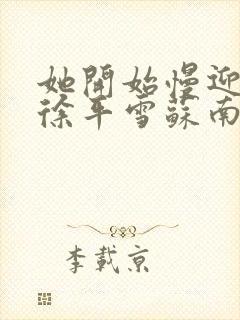 她開始慢迎
徐平雪蘇南
李載京